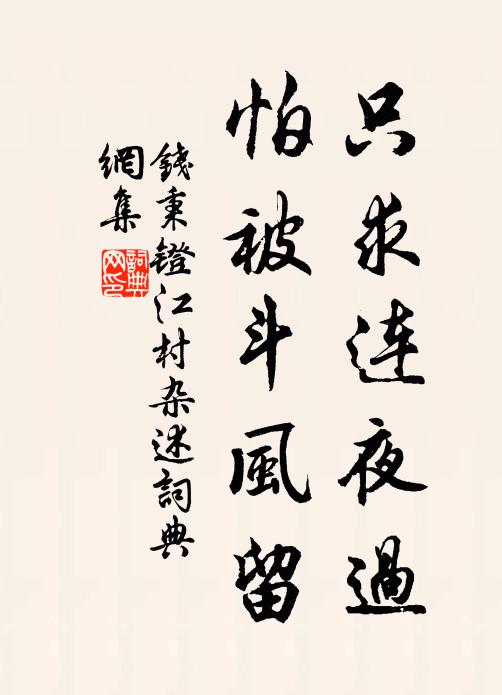 只求连夜過
怕被斗風留
錢秉鐙江村杂述詞典
網集
詞典网印